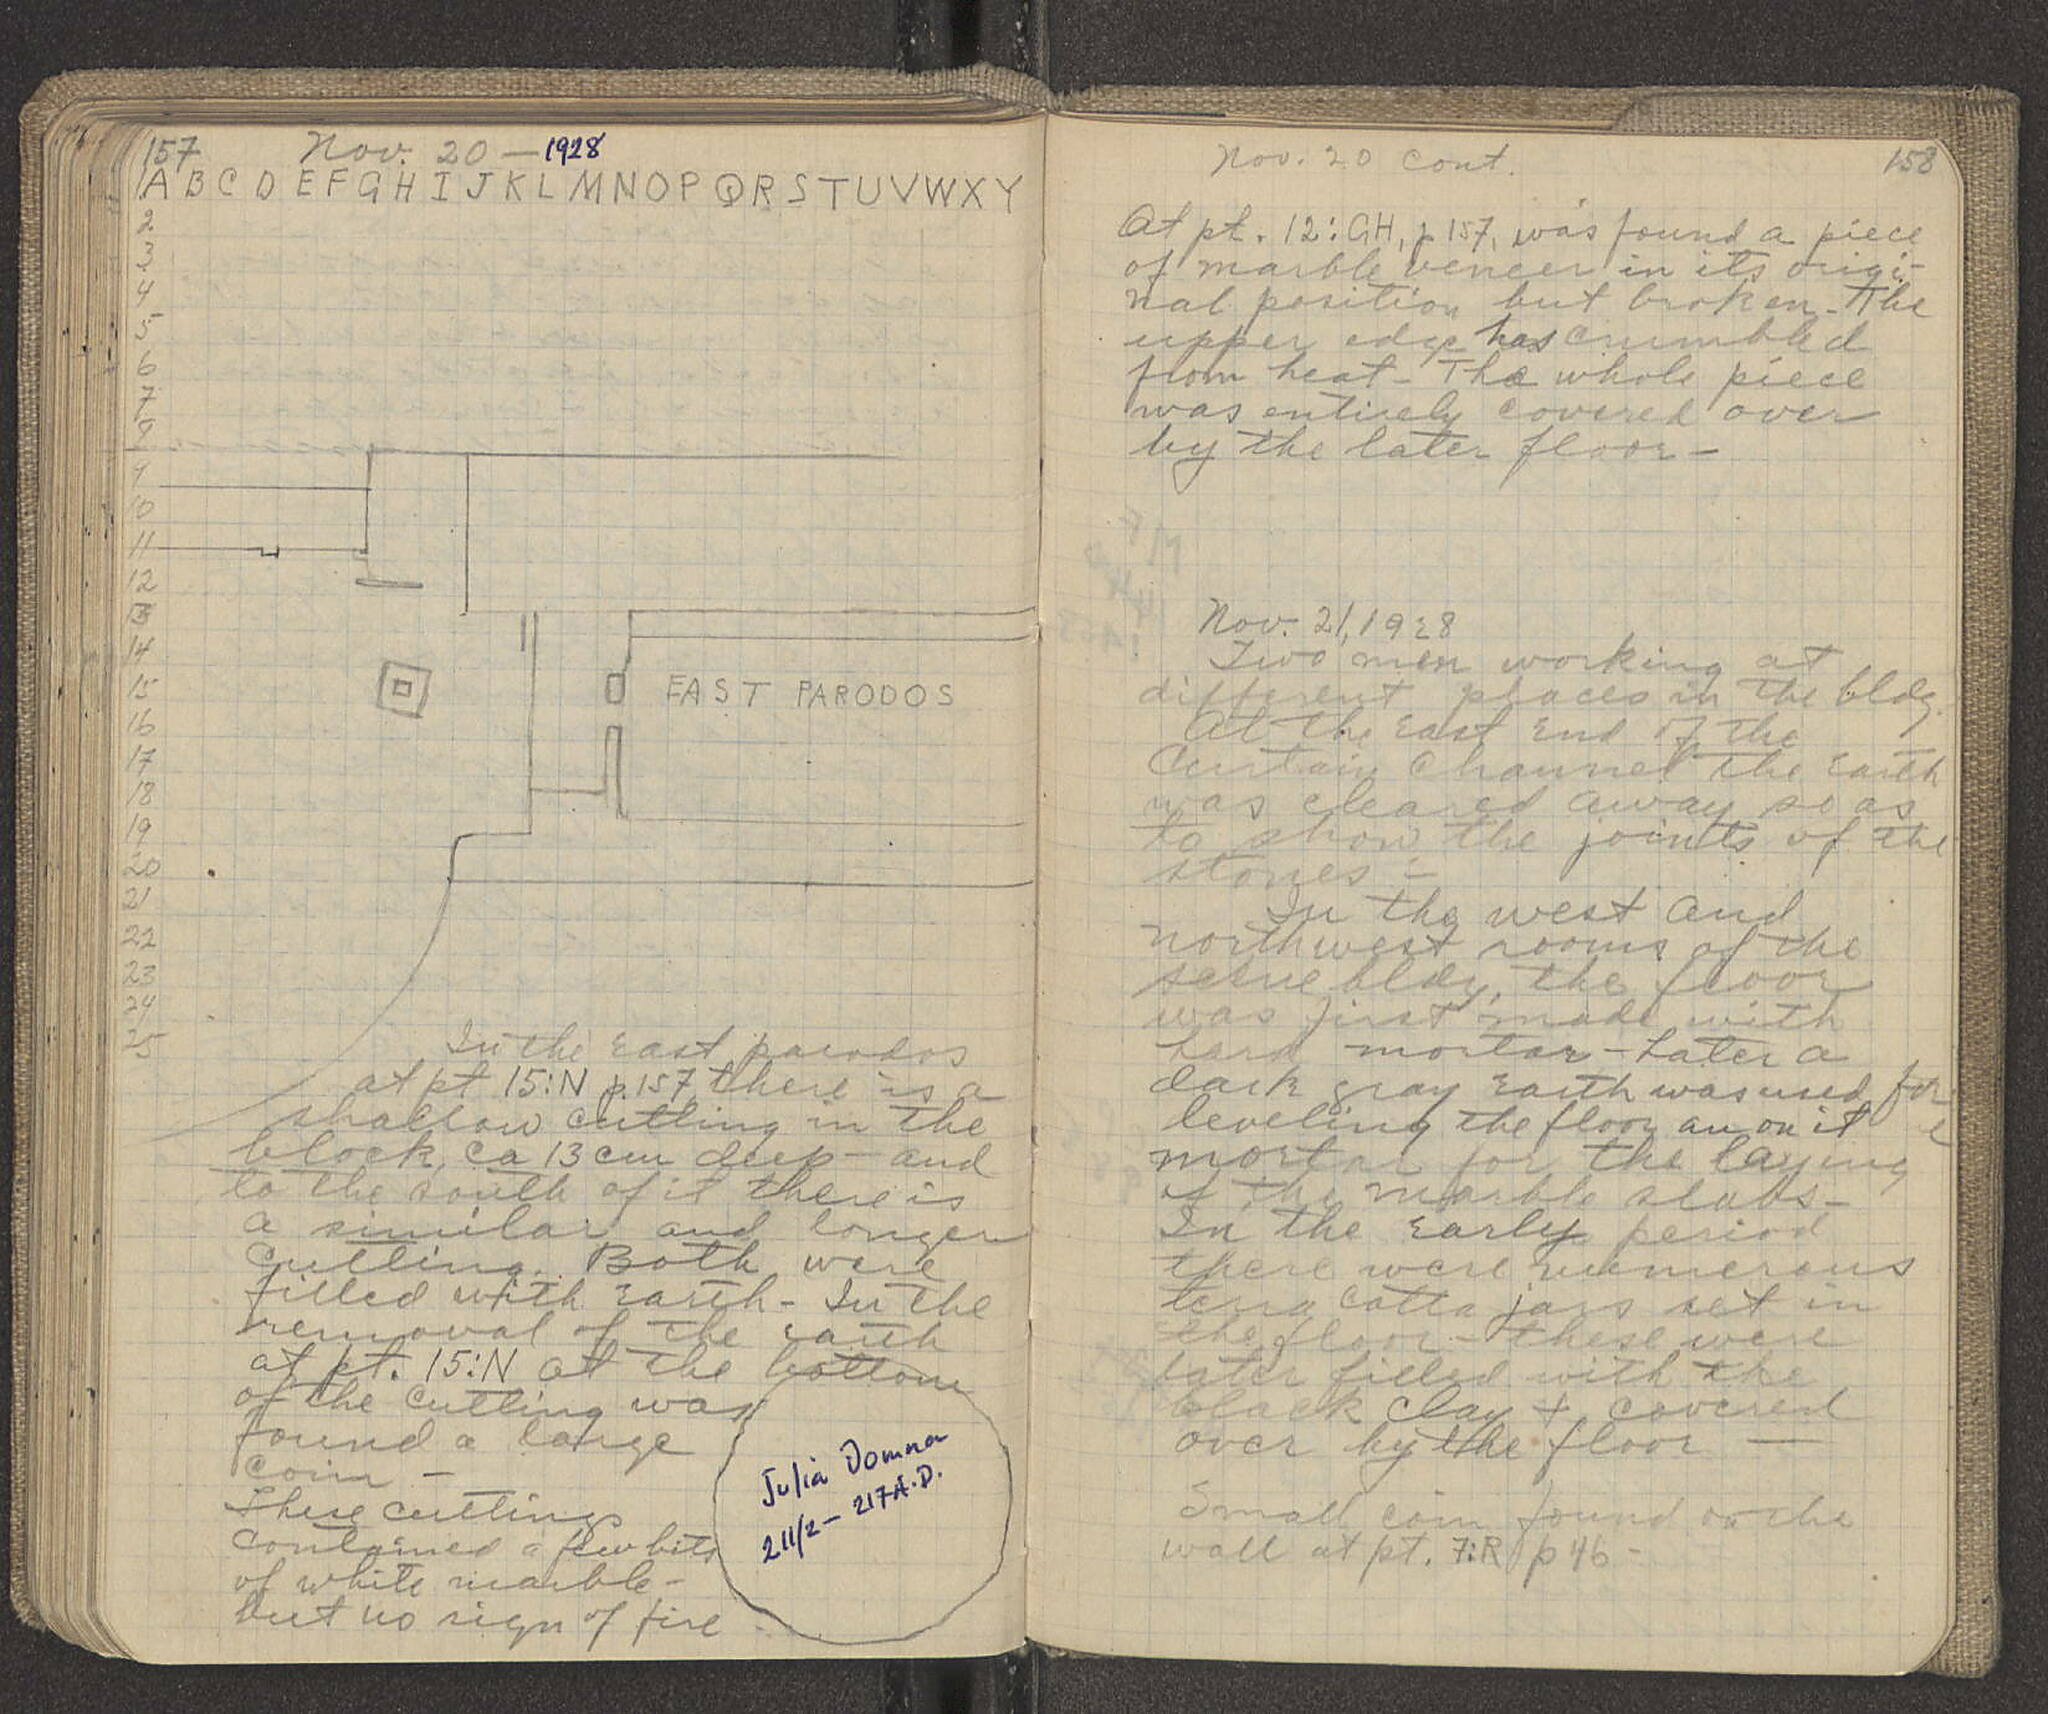 157 Nov. 20 — 1928
A B C D E F G H I J K L M N O P Q R S T U V W X Y
2
3
4
5
6
7
8
9
10
11
12
13
14
15
16
17
18
19
20
21
22
23
24
25
EAST PARODOS
In the East parodos
at pt 15:N p.157 there is a
shallow cutting in the
block, ca 13 cm deep - and
to the south of it there is
a similar and longer
cutting. Both were
filled with Earth - In the
removal of the Earth
at pt. 15:N at the bottom
of the cutting was
found a large
coin -
These cuttings
contained a few bits
of white marble -
but no sign of fire -
Julia Domna
211/2 - 217 A.D.
Nov. 20 cont. 158
At pt. 12:GH, p 157, was found a piece
of marble veneer in its origi-
nal position but broken - The
upper edge has crumbled
from heat - The whole piece
was entirely covered over
by the later floor -
Nov. 21, 1928
Two men working at
different places in the bldg.
At the East End of the
Curtain Channel the Earth
was cleared away so as
to show the joints of the
stones -
In the west and
northwest rooms of the
scene bldg, the floor
was first made with
hard mortar - Later a
dark gray Earth was used for
leveling the floor an on it
mortar for the laying
of the marble slabs -
In the Early period
there were numerous
terra cotta jars set in
the floor - these were
later filled with the
black clay + covered
over by the floor —
Small coin found on the
wall at pt. 7:R p 46 -